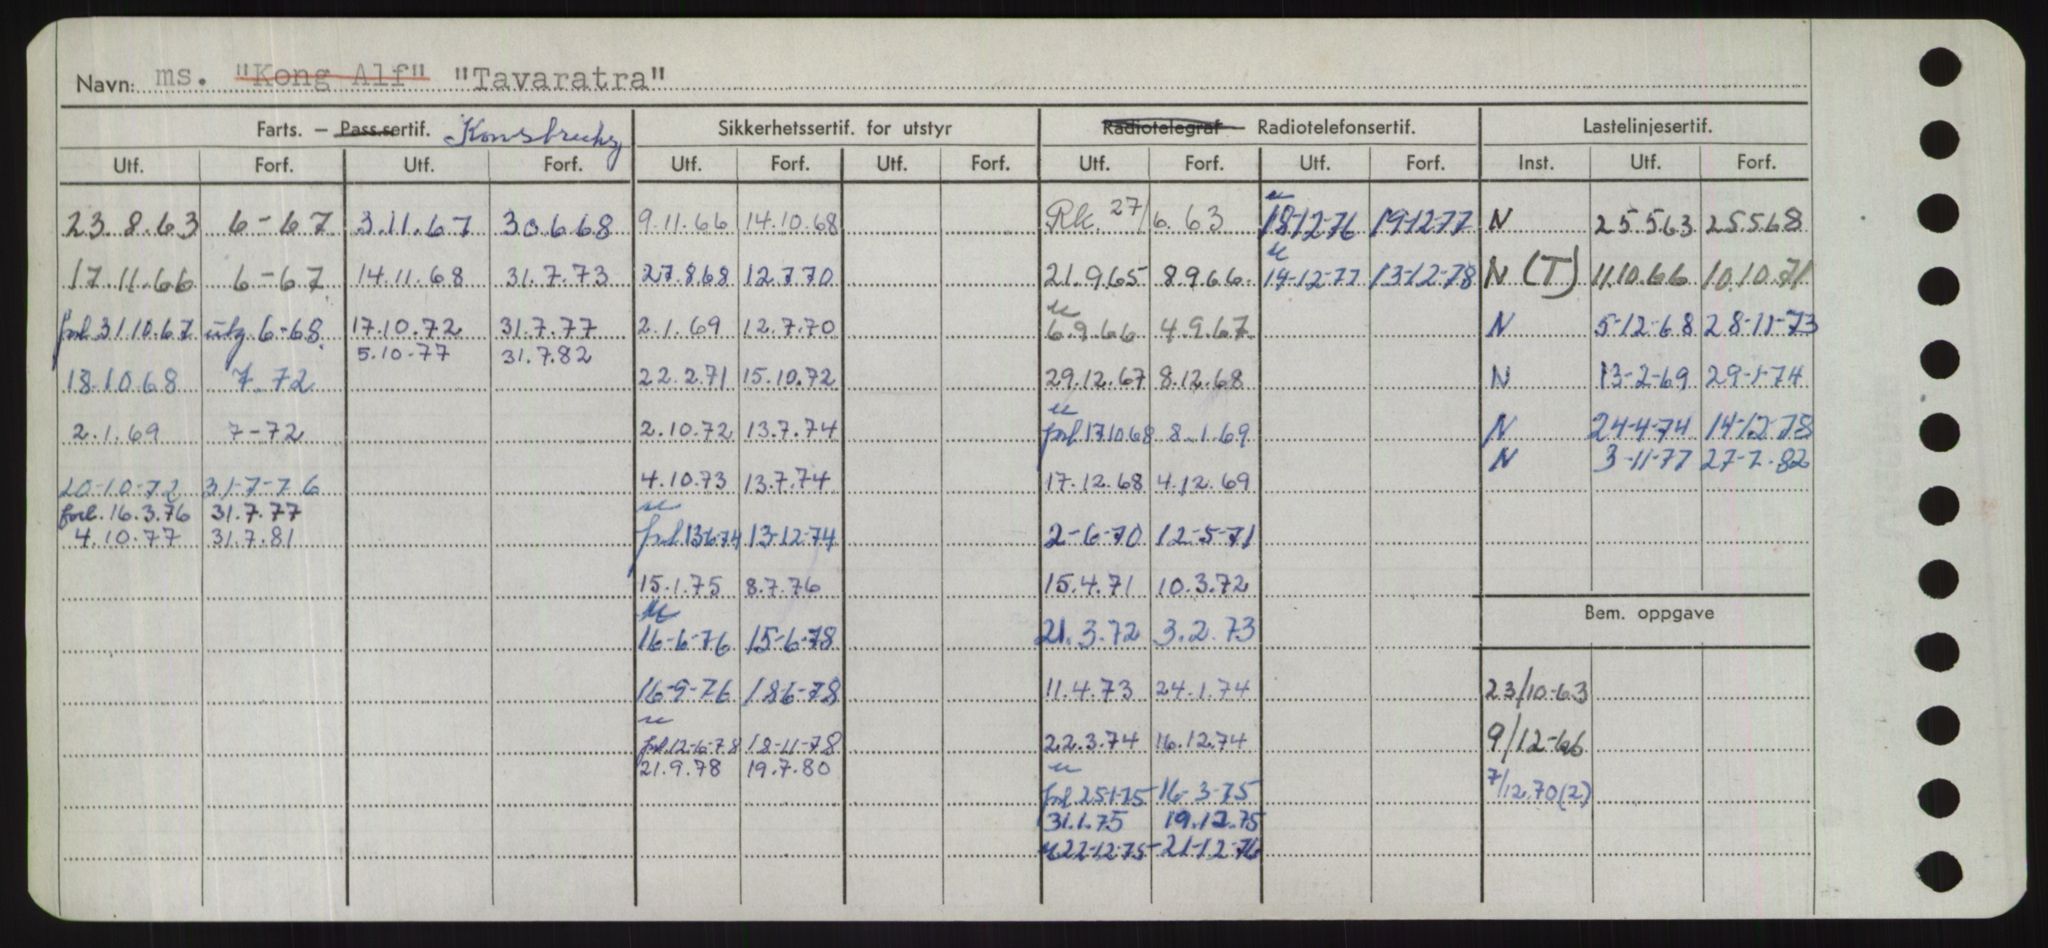 Navn: ms. "Kong Alf" "Tavaratra"
Farts. — Pass.sertif. Sikkerhetssertif. for utstyr Radiotelegraf — Radiotelefonsertif. Lastelinjesertif.
Utf. Forf. Utf. Forf. Utf. Forf. Utf. Forf. Utf. Forf. Utf. Forf. Inst. Utf. Forf.
23.8.63 6-67 3.11.67 30.6.68 9.11.66 14.10.68 Rk. 27/6.63 18-12-76 19-12-77 N 25.5.63 25.5.68
17.11.66 6-67 14.11.68 31.7.73 27.8.68 12.7.70 21.9.65 8.9.66 19-12-77 13-12-78 N (T) 11.10.66 10.10.71
forl 31.10.67 utg. 6-68. 17.10.72 31.7.77 2.1.69 12.7.70 6.9.66 4.9.67 N 5-12-68 28-11-73
5.10-77 31.7.82
18.10.68 7.72 22.2.71 15.10.72 29.12.67 8.12.68 N 13-2-69 29-1-74
2.1.69 7-72 2.10.72 13.7.74 forl 17.10.68 8.1.69 N 24-4-74 14-12-78
N 3-11-77 27-7-82
20-10-72 31-7-76 4.10.73 13.7.74 17.12.68 4.12.69
forl. 16.3.76 31.7.77
4.10.77 31.7.81 forl 13-6-74 13-12-74 2-6-70 12-5-71
15.1.75 8.7.76 15.4.71 10.3.72
Bem. oppgave
16-6-76 15-6-78 21.3.72 3.2.73
16-9-76 18-6-78 11.4.73 24.1.74 23/10-63
forl 12-6-78 18-11-78 22.3.74 16.12.74 9/12-66
21.9.78 19.7.80
forl 25-1-75 16-3-75 7/12.70(2)
31.1.75 19.12.75
22-12-75 21-12-76